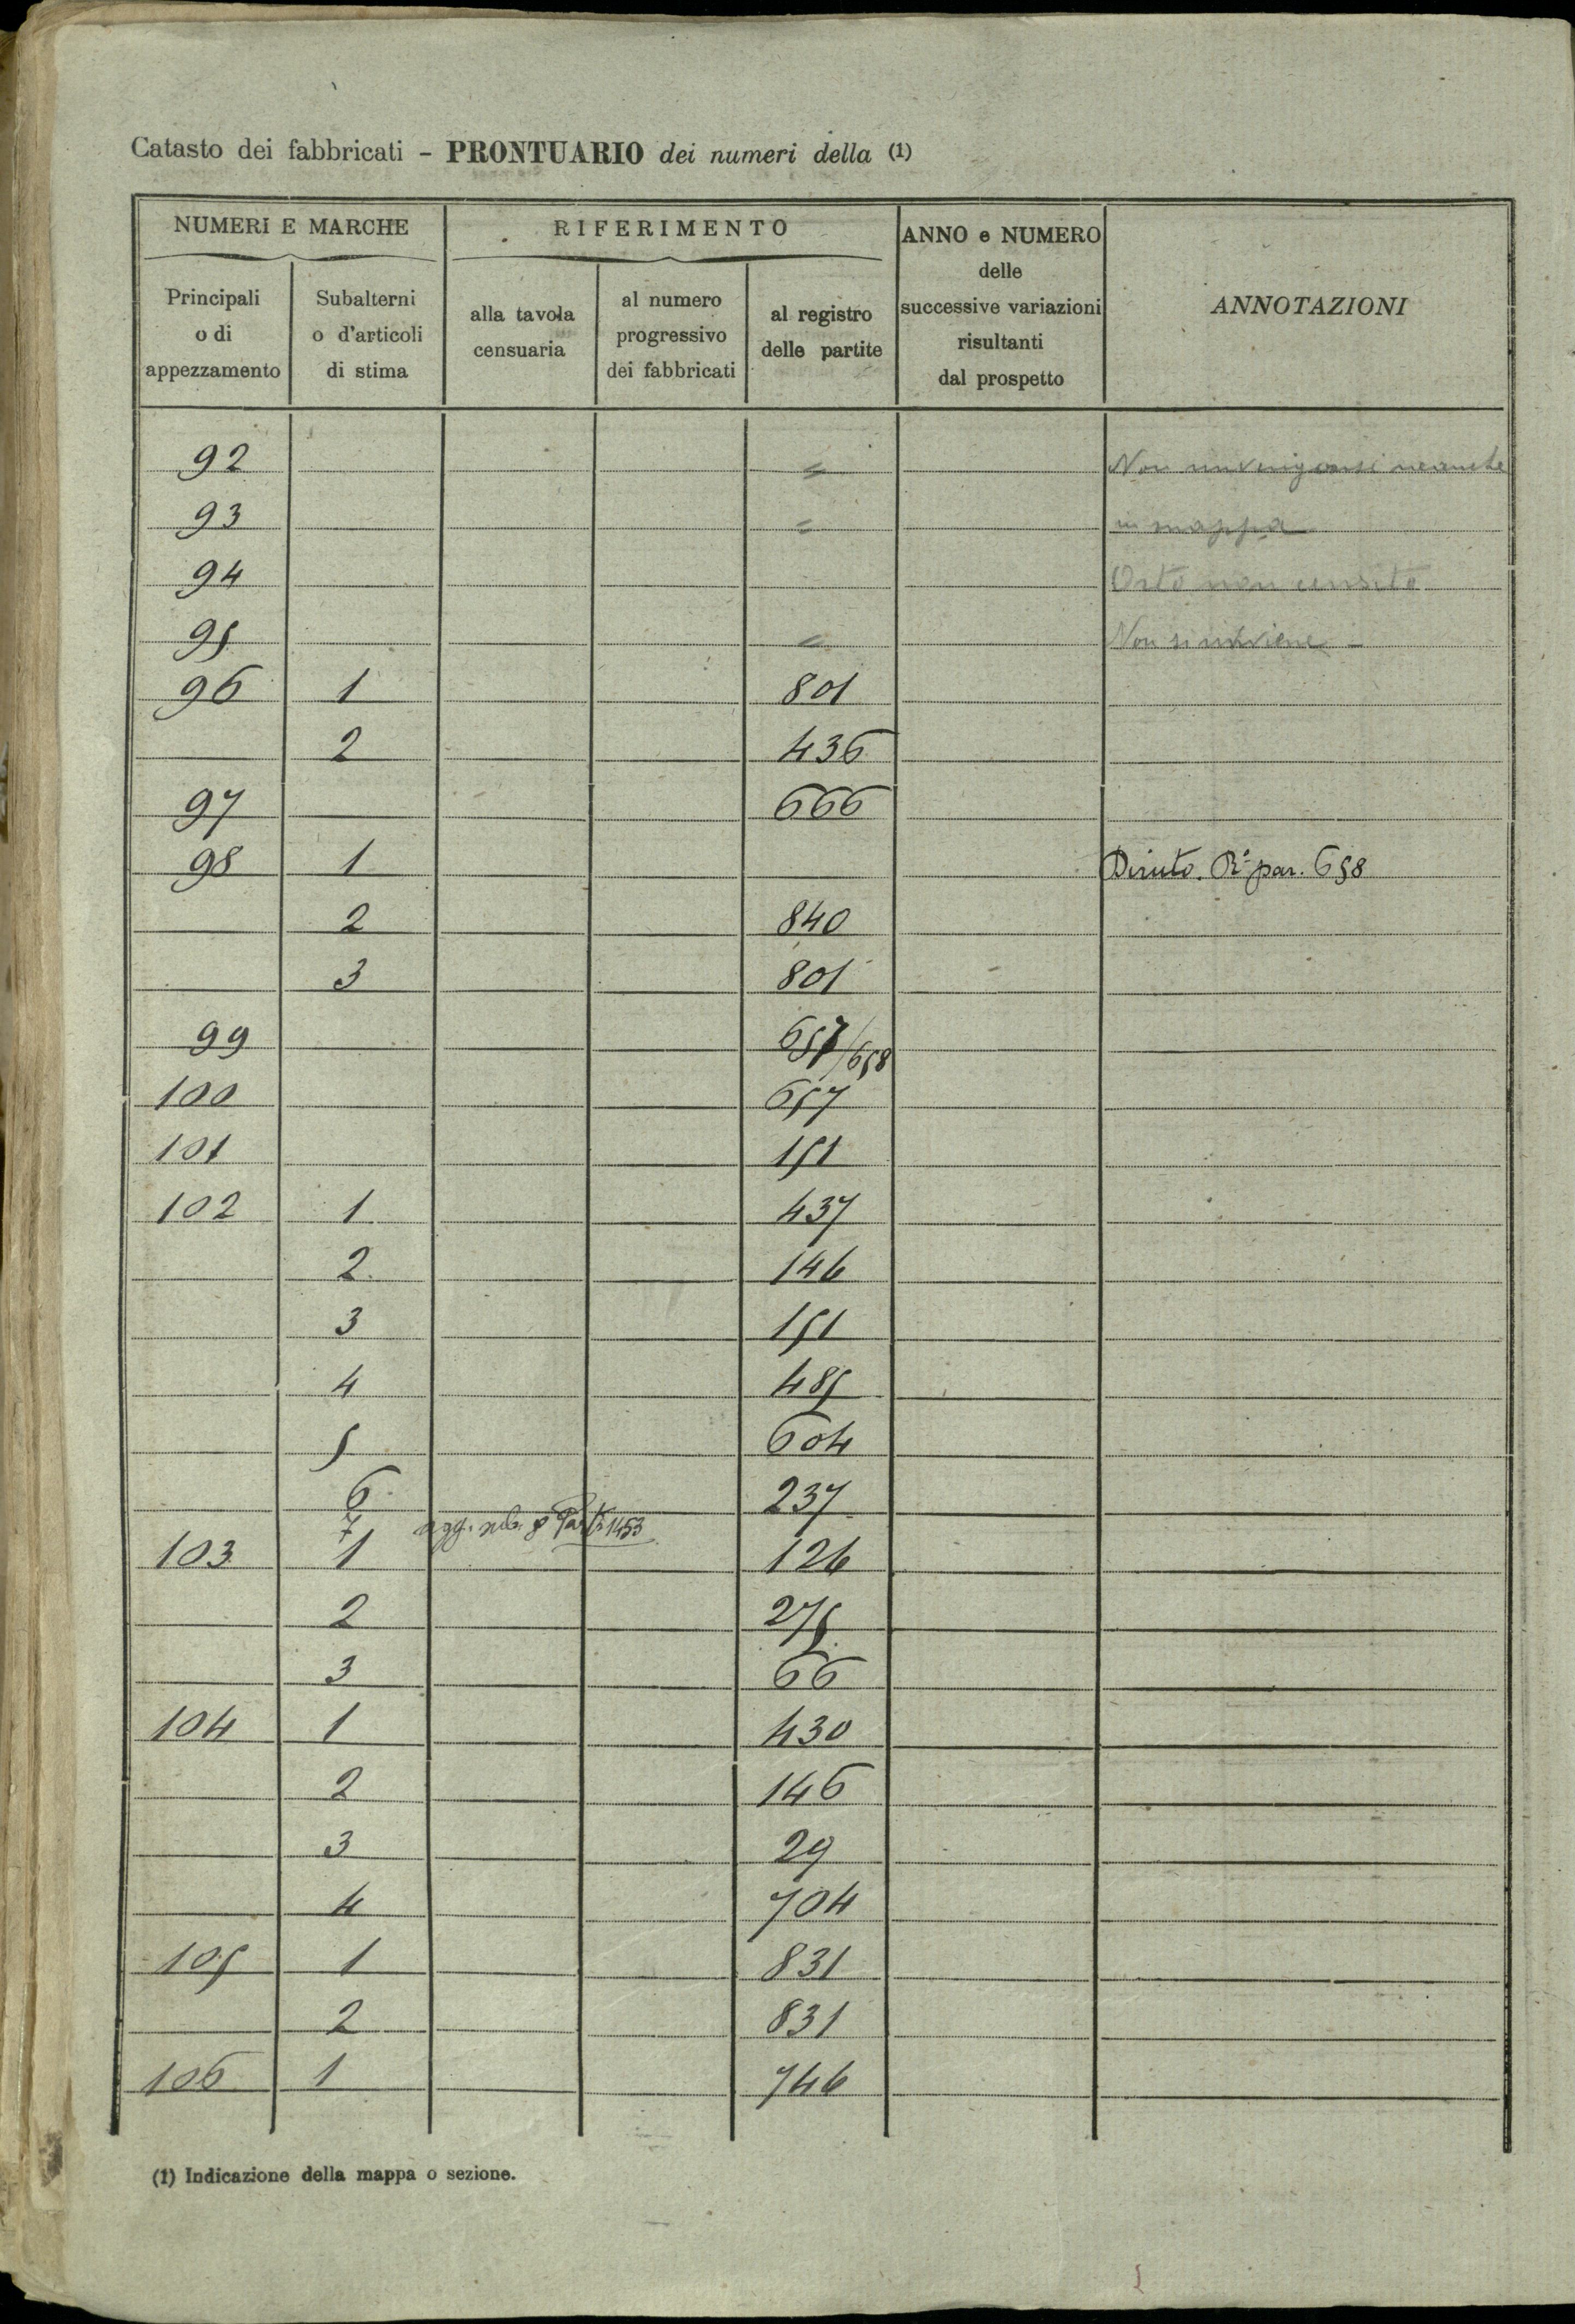 Catasto dei fabbricati - PRONTUARIO dei numeri della (1)
NUMERI E MARCHE
RIFERIMENTO
ANNO e NUMERO
delle
successive variazioni
risultanti
dal prospetto
ANNOTAZIONI
Principali
o di
appezzamento
Subalterni
o d'articoli
di stima
alla tavola
censuaria
al numero
progressivo
dei fabbricati
al registro
delle partite
92 = Non rinvengonsi neanche
93 = in mappa
94 Orto non censito
95 = Non si rinviene -
96 1 801
2 436
97 666
98 1 Diruto. par. 658
2 840
3 801
99 657/658
100 657
101 151
102 1 437
2 146
3 151
4 485
5 604
6 237
7 agg. sub. 1453
103 1 126
2 275
3 66
104 1 430
2 146
3 29
4 704
105 1 831
2 831
106 1 746
(1) Indicazione della mappa o sezione.